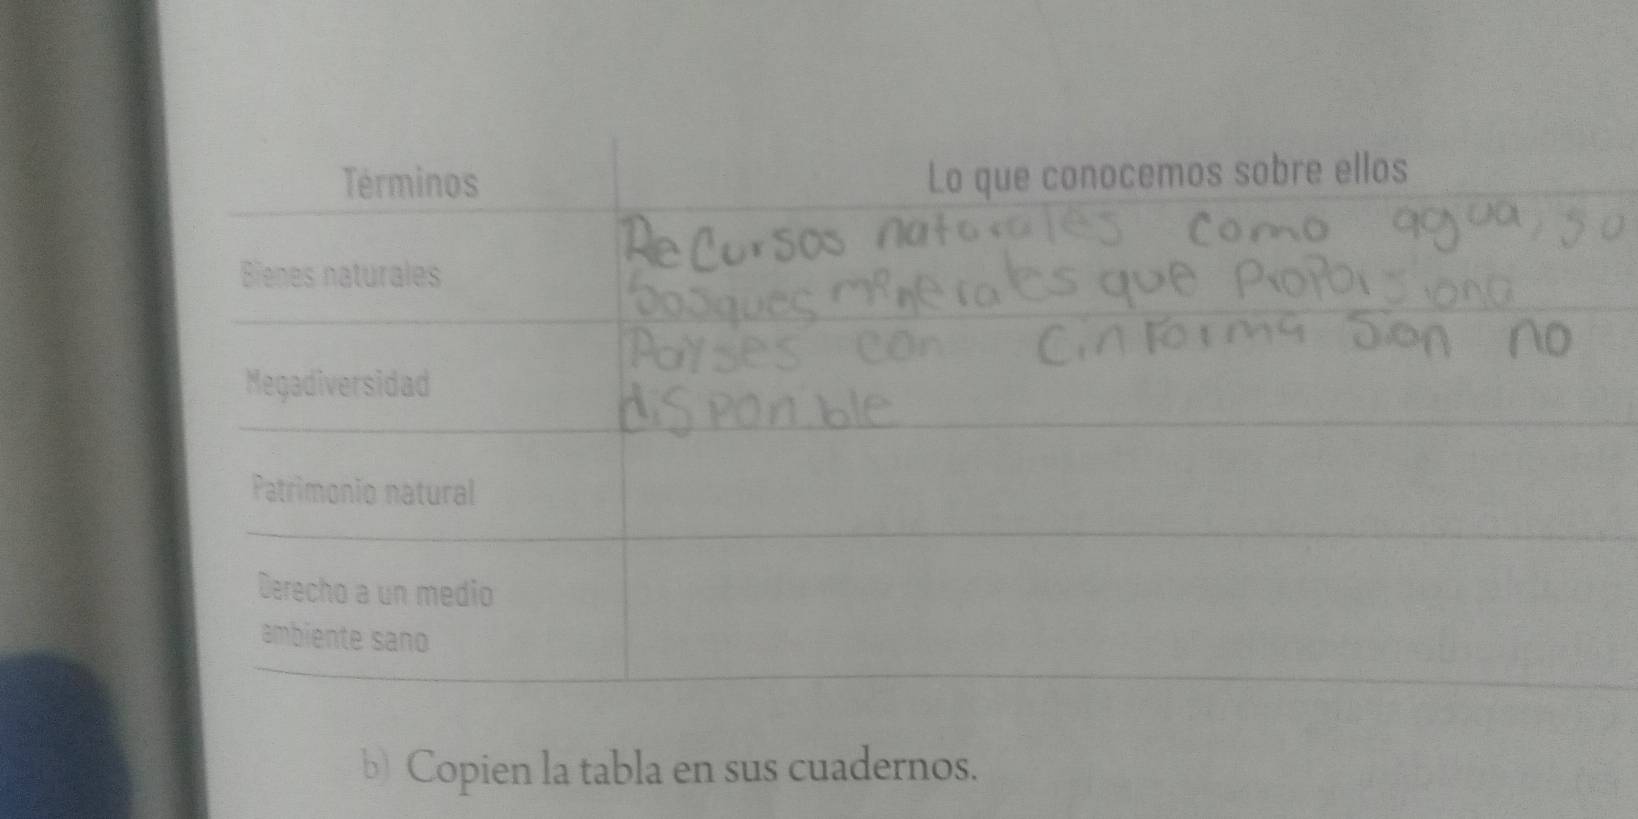 Términos
Lo que conocemos sobre ellos
Bienes naturales
Recursos naturales como agua, su
bosques minerales que proporsiona
Megadiversidad
Payses con cinforma sion no
disponible
Patrimonio natural
Derecho a un medio
ambiente sano
b) Copien la tabla en sus cuadernos.